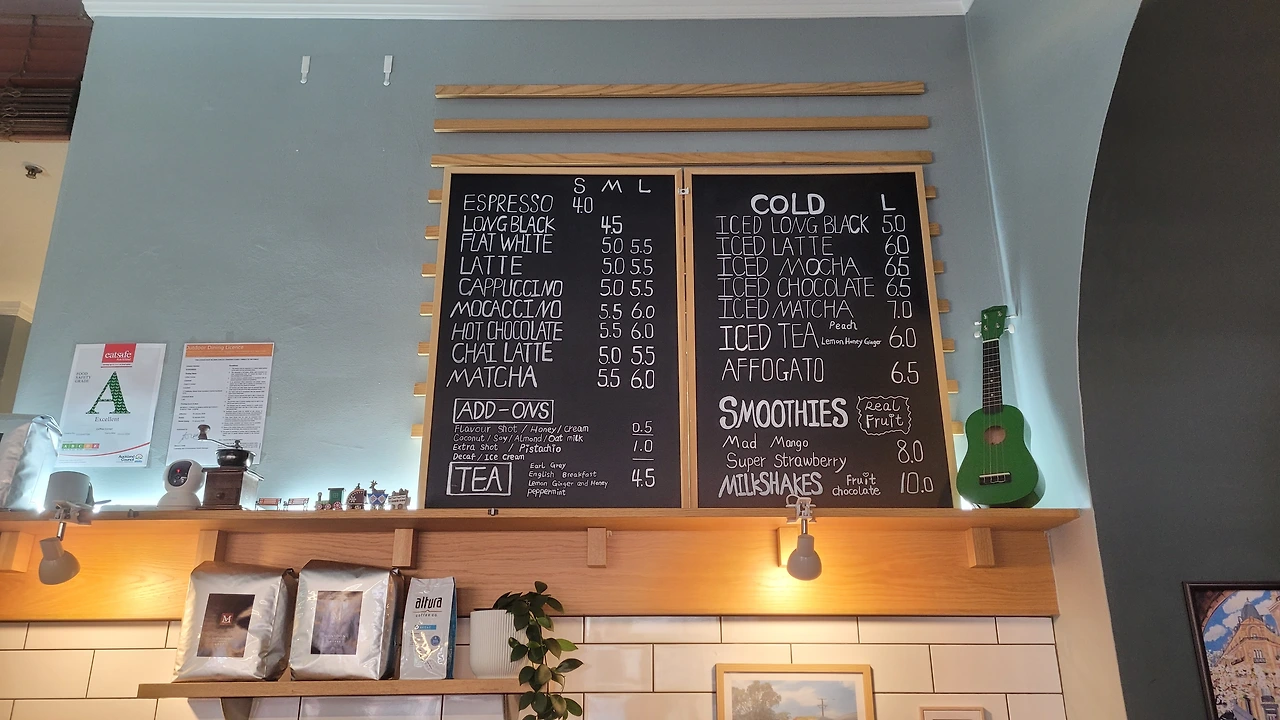 S M L
ESPRESSO 4.0
LONG BLACK 4.5
FLAT WHITE 5.0 5.5
LATTE 5.0 5.5
CAPPUCCINO 5.0 5.5
MOCACCINO 5.5 6.0
HOT CHOCOLATE 5.5 6.0
CHAI LATTE 5.0 5.5
MATCHA 5.5 6.0
ADD-ONS
Flavour Shot / Honey / Cream 0.5
Coconut / Soy / Almond / Oat milk
Extra Shot / Pistachio 1.0
Decaf / Ice Cream
TEA
Earl Grey
English Breakfast
Lemon Ginger and Honey
peppermint
4.5
COLD L
ICED LONG BLACK 5.0
ICED LATTE 6.0
ICED MOCHA 6.5
ICED CHOCOLATE 6.5
ICED MATCHA 7.0
ICED TEA Peach
Lemon Honey Ginger 6.0
AFFOGATO 6.5
SMOOTHIES Real
Fruit
Mad Mango
Super Strawberry 8.0
MILKSHAKES Fruit
chocolate 10.0
eatsafe
FOOD
SAFETY
GRADE
A
Excellent
Auckland
Council
Outdoor Dining Licence
M
altura
COFFEE CO.